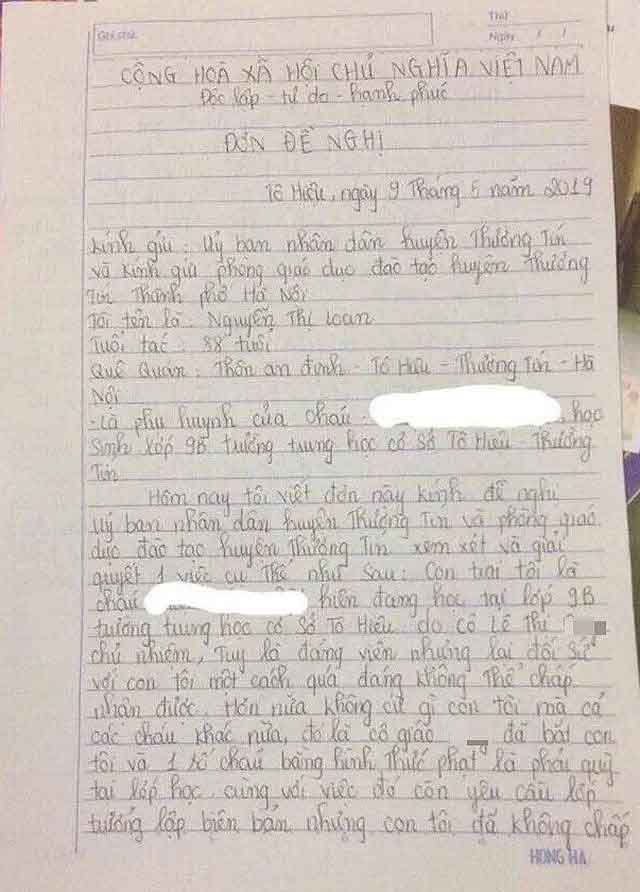 Ghi chú:
Thứ
Ngày / /
CỘNG HOÀ XÃ HỘI CHỦ NGHĨA VIỆT NAM
Độc lập - tự do - hạnh phúc
ĐƠN ĐỀ NGHỊ
Tô Hiệu, ngày 9 Tháng 5 năm 2019
Kính gửi: Uỷ ban nhân dân huyện Thường Tín
và kính gửi phòng giáo dục đào tạo huyện Thường
Tín Thành phố Hà Nội
Tôi tên là: Nguyễn Thị Loan
Tuổi tác: 38 tuổi
Quê Quán: Thôn an định - Tô Hiệu - Thường Tín - Hà
Nội
- Là phụ huynh của cháu - học
sinh lớp 9B tường trung học cơ sở Tô Hiệu - Thường
Tín
Hôm nay tôi viết đơn này kính đề nghị
uỷ ban nhân dân huyện Thường Tín và phòng giáo
dục đào tạo huyện Thường Tín xem xét và giải
quyết 1 việc cụ thể như sau: Con trai tôi là
cháu hiện đang học tại lớp 9B
tường trung học cơ sở Tô Hiệu do cô Lê Thị
chủ nhiệm, Tuy là đảng viên nhưng lại đối sử
với con tôi một cách quá đáng không thể chấp
nhận được. Hơn nữa không cứ gì con tôi mà cả
các cháu khác nữa, đó là cô giáo đã bắt con
tôi và 1 số cháu bằng hình thức phạt là phải quỳ
tại lớp học, cùng với việc đó còn yêu cầu lớp
tưởng lập biên bản nhưng con tôi đã không chấp
HONG HA